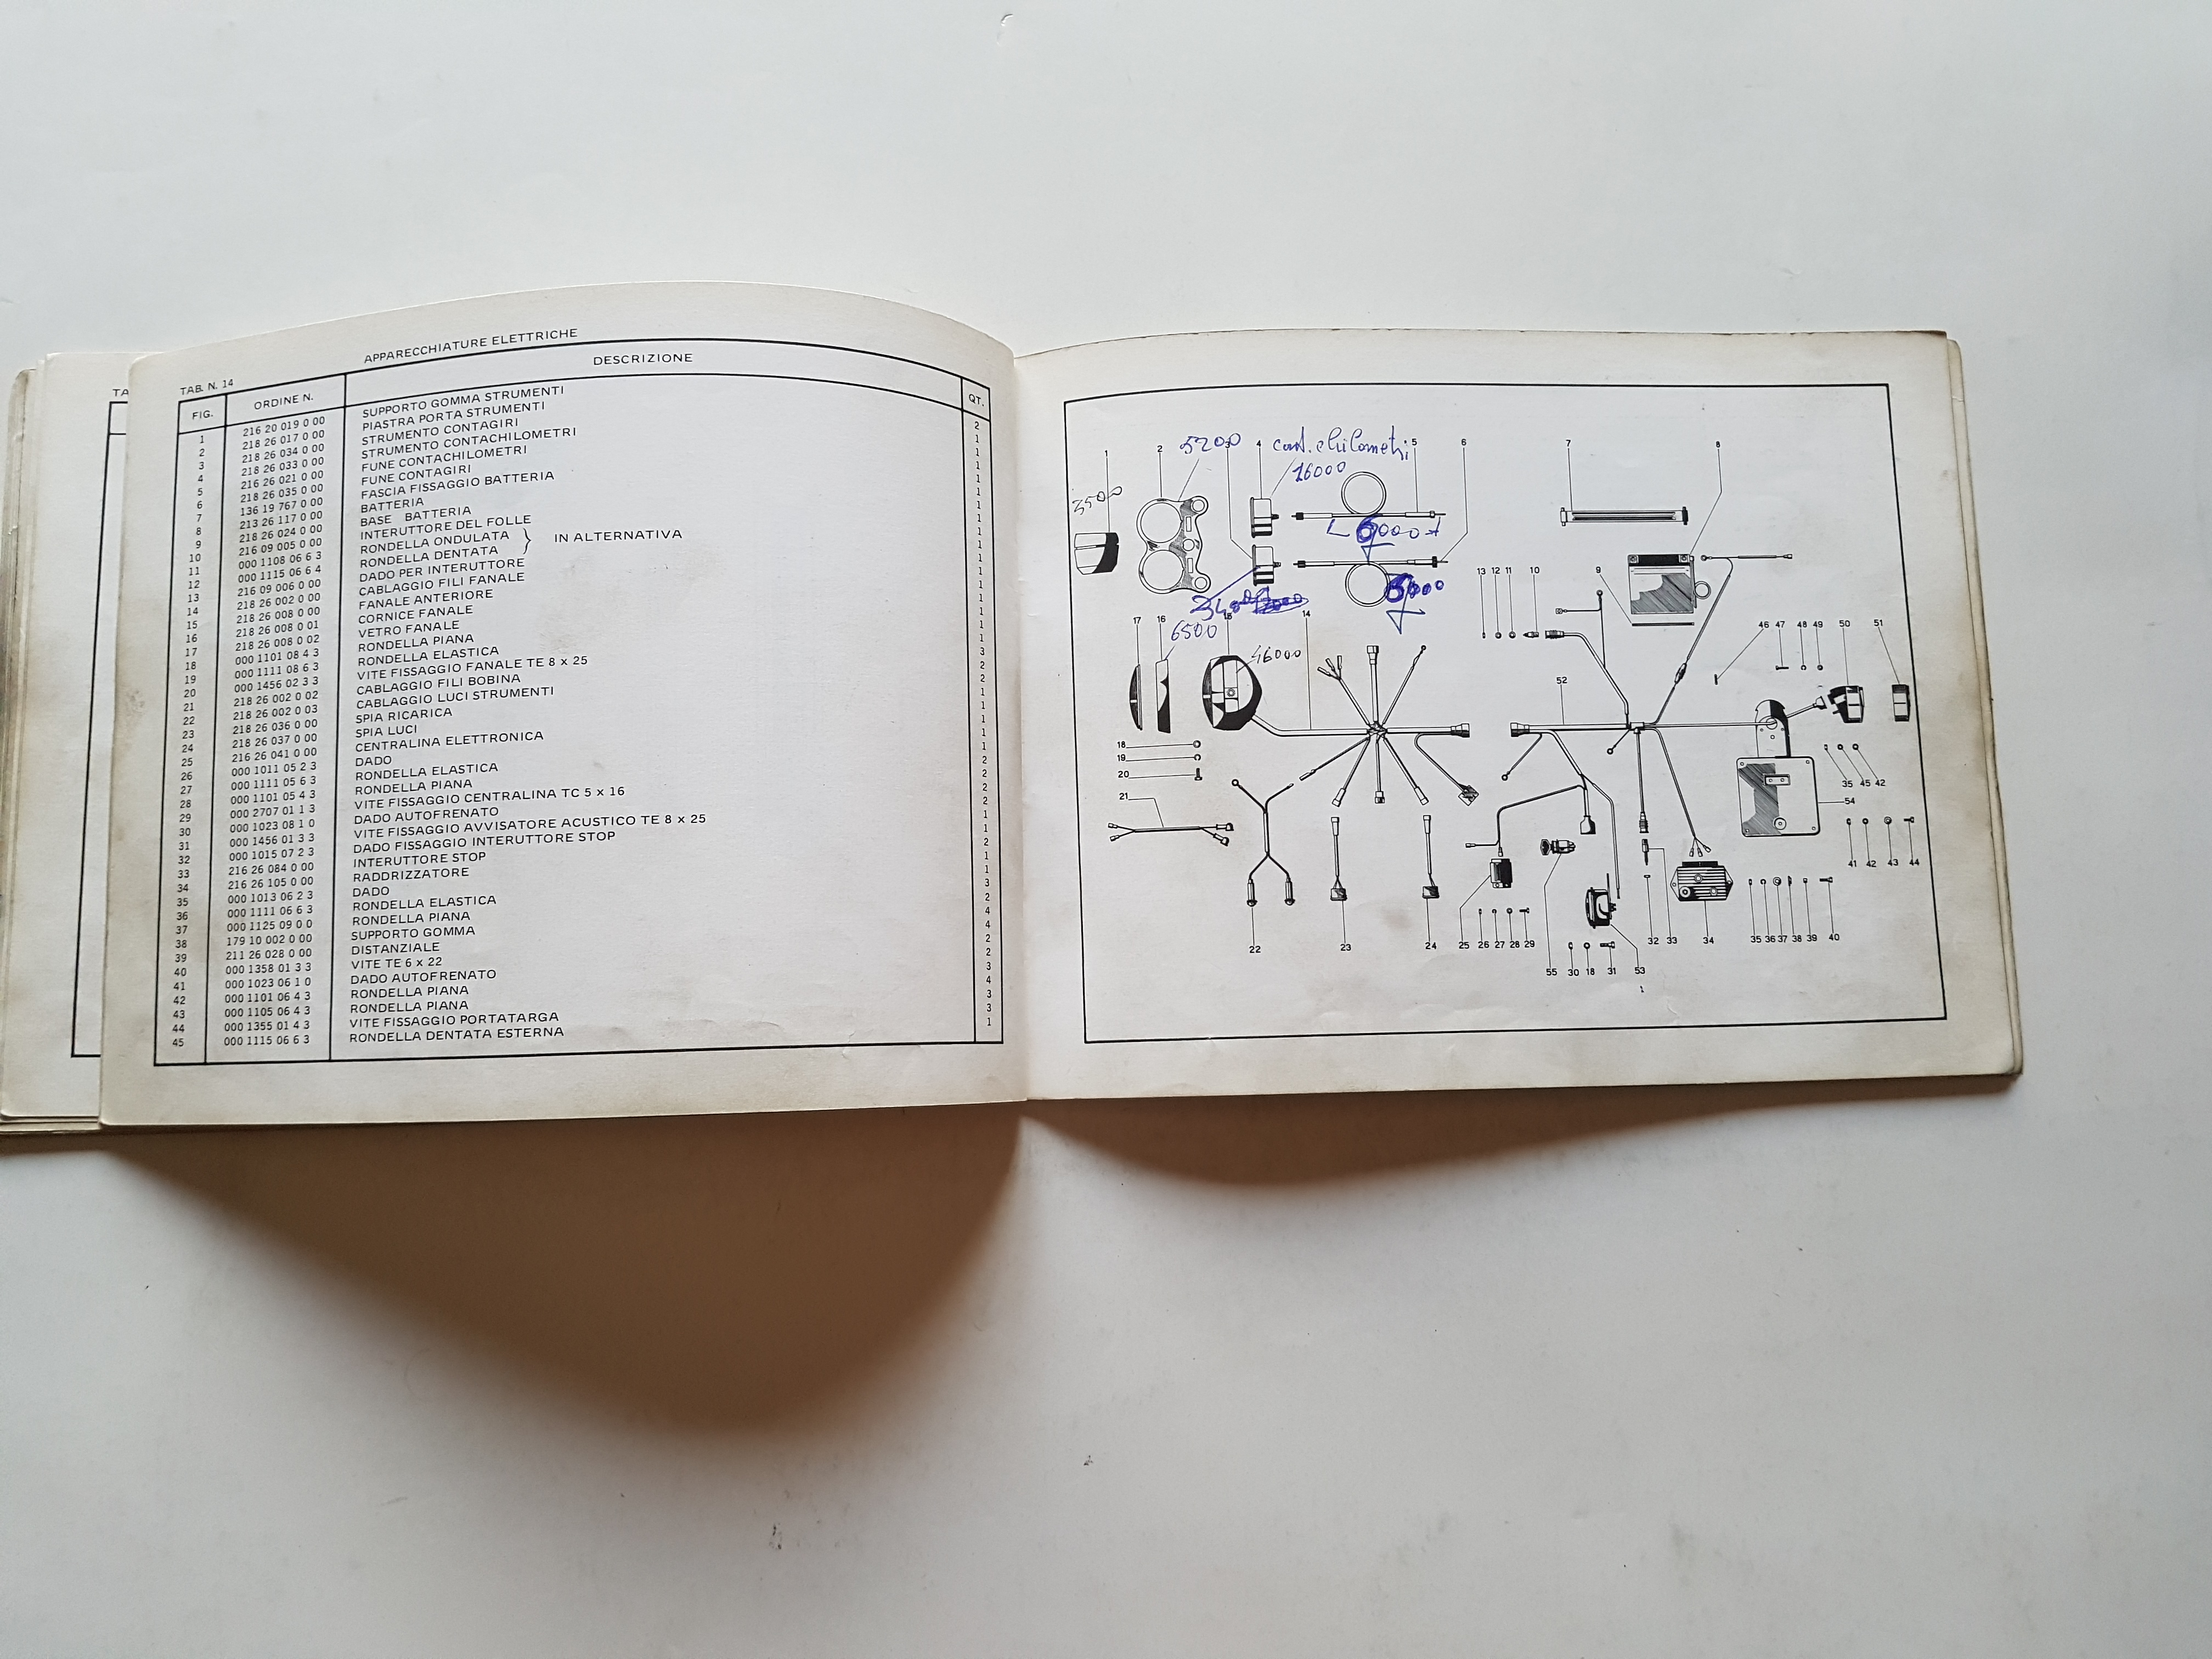 TA
APPARECCHIATURE ELETTRICHE
TAB. N. 14
FIG. ORDINE N. DESCRIZIONE QT.
1 216 20 019 0 00 SUPPORTO GOMMA STRUMENTI 2
2 218 26 017 0 00 PIASTRA PORTA STRUMENTI 1
3 218 26 034 0 00 STRUMENTO CONTAGIRI 1
4 218 26 033 0 00 STRUMENTO CONTACHILOMETRI 1
5 216 26 021 0 00 FUNE CONTACHILOMETRI 1
6 218 26 035 0 00 FUNE CONTAGIRI 1
7 136 19 767 0 00 FASCIA FISSAGGIO BATTERIA 1
8 213 26 117 0 00 BATTERIA 1
9 218 26 024 0 00 BASE BATTERIA 1
10 216 09 005 0 00 INTERUTTORE DEL FOLLE 1
11 000 1108 06 6 3 RONDELLA ONDULATA } IN ALTERNATIVA 1
12 000 1115 06 6 4 RONDELLA DENTATA 1
13 216 09 006 0 00 DADO PER INTERUTTORE 1
14 218 26 002 0 00 CABLAGGIO FILI FANALE 1
15 218 26 008 0 00 FANALE ANTERIORE 1
16 218 26 008 0 01 CORNICE FANALE 1
17 218 26 008 0 02 VETRO FANALE 1
18 000 1101 08 4 3 RONDELLA PIANA 3
19 000 1111 08 6 3 RONDELLA ELASTICA 2
20 000 1456 02 3 3 VITE FISSAGGIO FANALE TE 8 x 25 2
21 218 26 002 0 02 CABLAGGIO FILI BOBINA 1
22 218 26 002 0 03 CABLAGGIO LUCI STRUMENTI 1
23 218 26 036 0 00 SPIA RICARICA 1
24 218 26 037 0 00 SPIA LUCI 1
25 216 26 041 0 00 CENTRALINA ELETTRONICA 1
26 000 1011 05 2 3 DADO 2
27 000 1111 05 6 3 RONDELLA ELASTICA 2
28 000 1101 05 4 3 RONDELLA PIANA 2
29 000 2707 01 1 3 VITE FISSAGGIO CENTRALINA TC 5 x 16 2
30 000 1023 08 1 0 DADO AUTOFRENATO 1
31 000 1456 01 3 3 VITE FISSAGGIO AVVISATORE ACUSTICO TE 8 x 25 1
32 000 1015 07 2 3 DADO FISSAGGIO INTERUTTORE STOP 2
33 216 26 084 0 00 INTERUTTORE STOP 1
34 216 26 105 0 00 RADDRIZZATORE 1
35 000 1013 06 2 3 DADO 3
36 000 1111 06 6 3 RONDELLA ELASTICA 2
37 000 1125 09 0 0 RONDELLA PIANA 4
38 179 10 002 0 00 SUPPORTO GOMMA 4
39 211 26 028 0 00 DISTANZIALE 2
40 000 1358 01 3 3 VITE TE 6 x 22 2
41 000 1023 06 1 0 DADO AUTOFRENATO 3
42 000 1101 06 4 3 RONDELLA PIANA 4
43 000 1105 06 4 3 RONDELLA PIANA 3
44 000 1355 01 4 3 VITE FISSAGGIO PORTATARGA 3
45 000 1115 06 6 3 RONDELLA DENTATA ESTERNA 1
1 2 5200 3 4 cont.chilometri 5 6 7 8
16000
3500
6000
6000
13 12 11 10 9
17 16 15 14
6500
46000
46 47 48 49 50 51
52
18
19
20
21
35 45 42
54
41 42 43 44
22 23 24 25 26 27 28 29 32 33 34 35 36 37 38 39 40
55 30 18 31 53
1